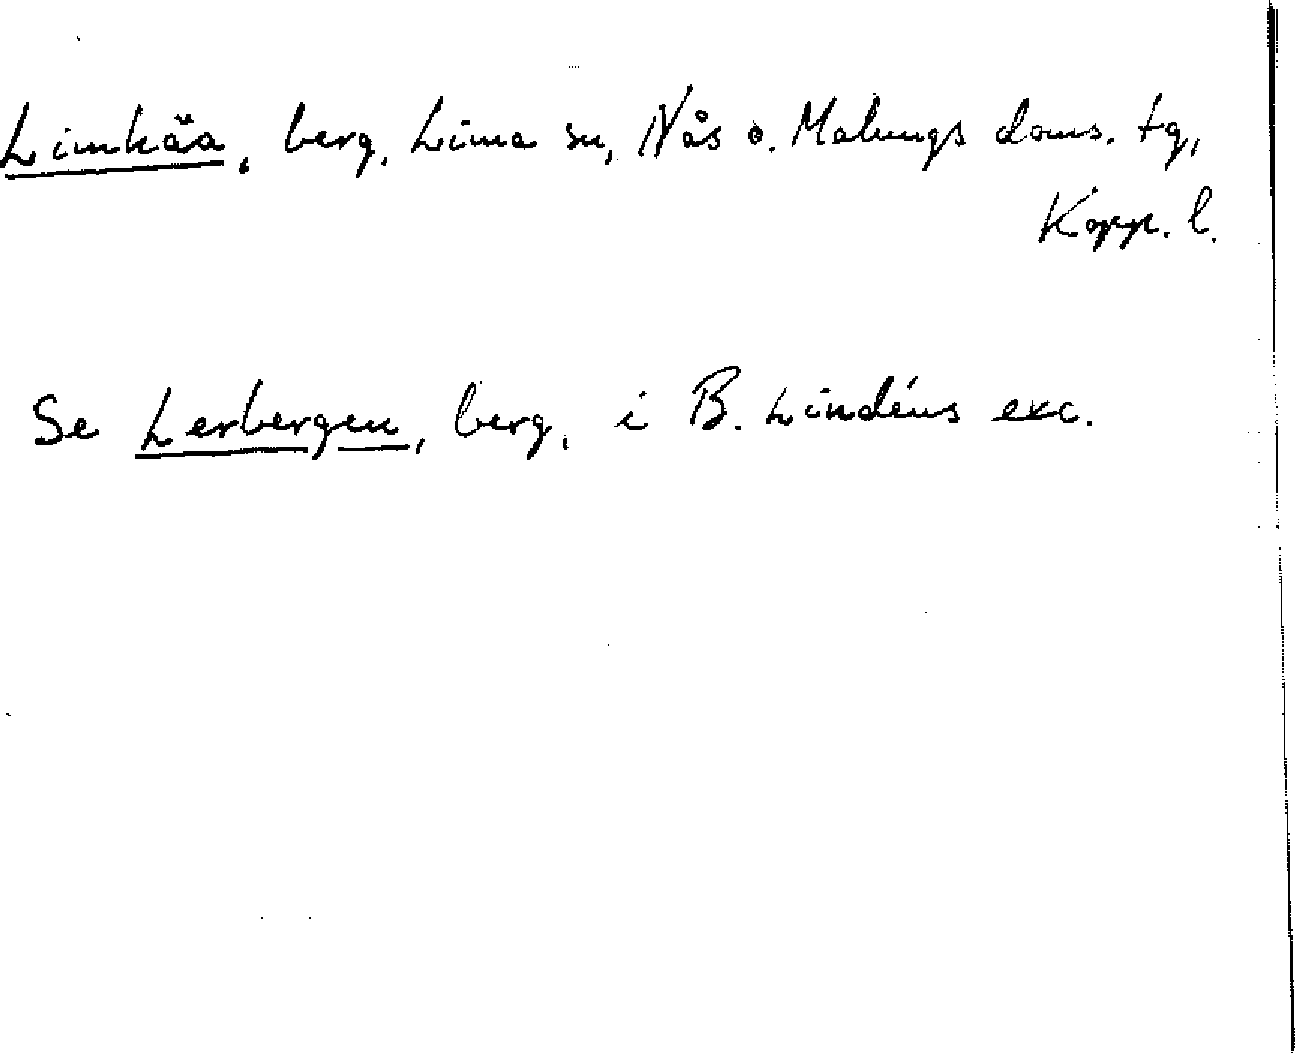 Limkäa, berg, Lima sn, Nås o. Malungs doms. tg,
Kopp. l.
Se Lerbergen, berg, i B. Lindéns exc.